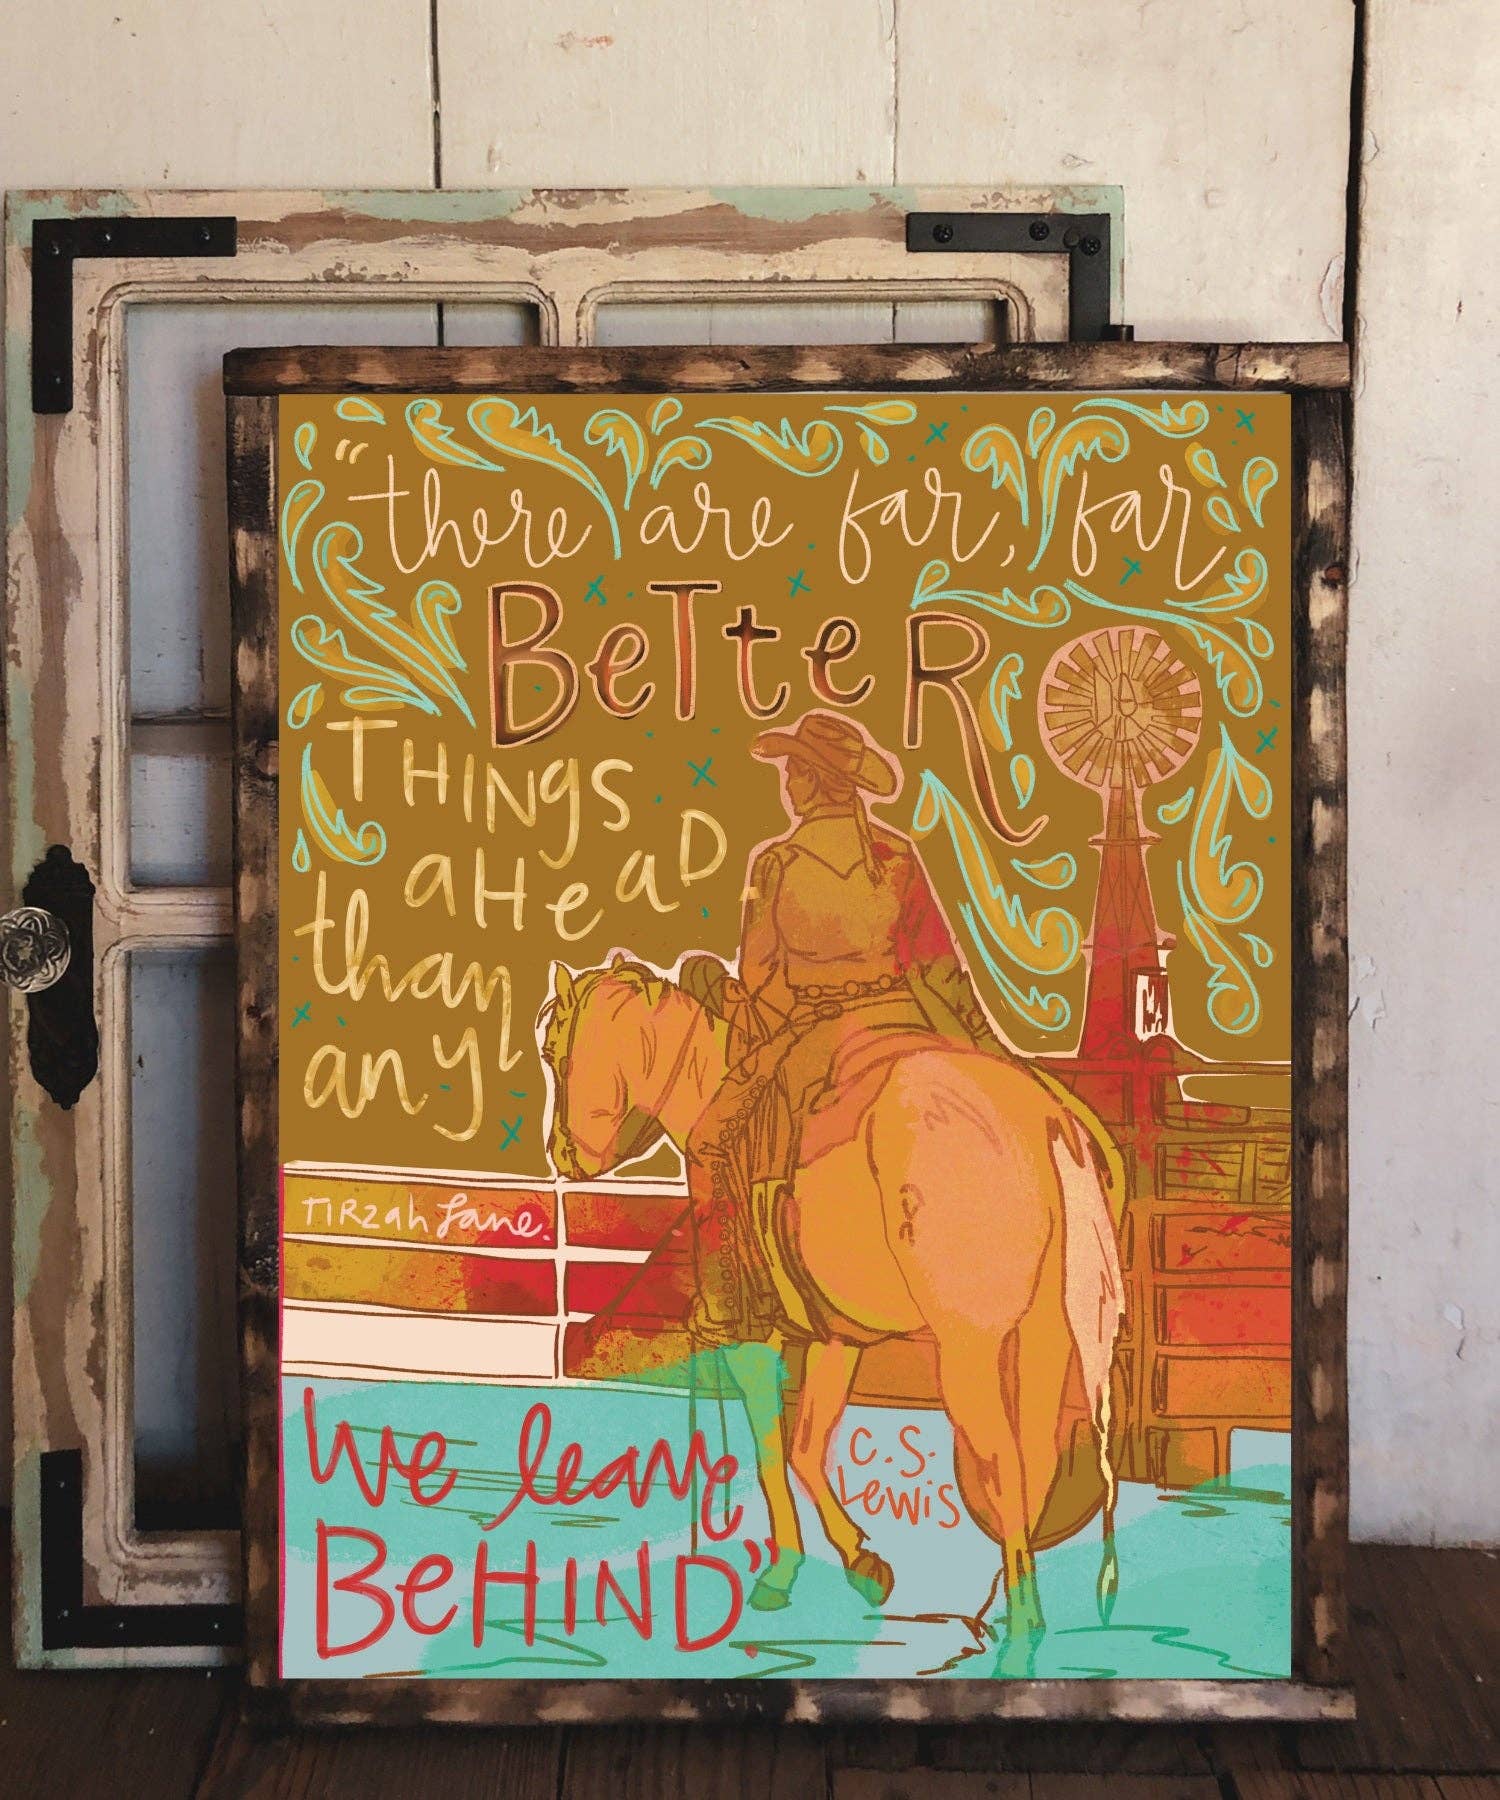 "there are far, far
BeTteR
THINgS
aHeaD
than
any
TIRzah Lane.
We leave
BeHIND".
C.S.
LewiS